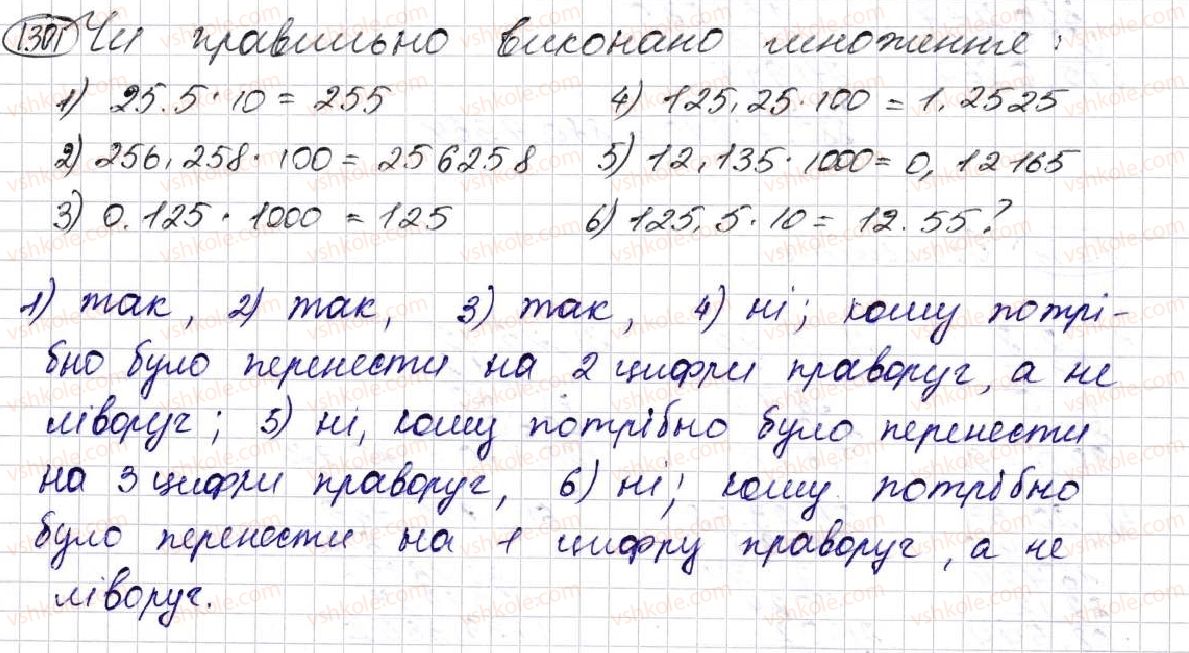 1301 Чи правильно виконано множення:
1) 25.5 · 10 = 255 4) 125,25 · 100 = 1,2525
2) 256,258 · 100 = 256258 5) 12,135 · 1000 = 0,12165
3) 0.125 · 1000 = 125 6) 125,5 · 10 = 12.55?
1) так, 2) так, 3) так, 4) ні; кому потрі-
бно було перенести на 2 цифри праворуч, а не
ліворуч; 5) ні, кому потрібно було перенести
на 3 цифри праворуч, 6) ні; кому потрібно
було перенести на 1 цифру праворуч, а не
ліворуч.